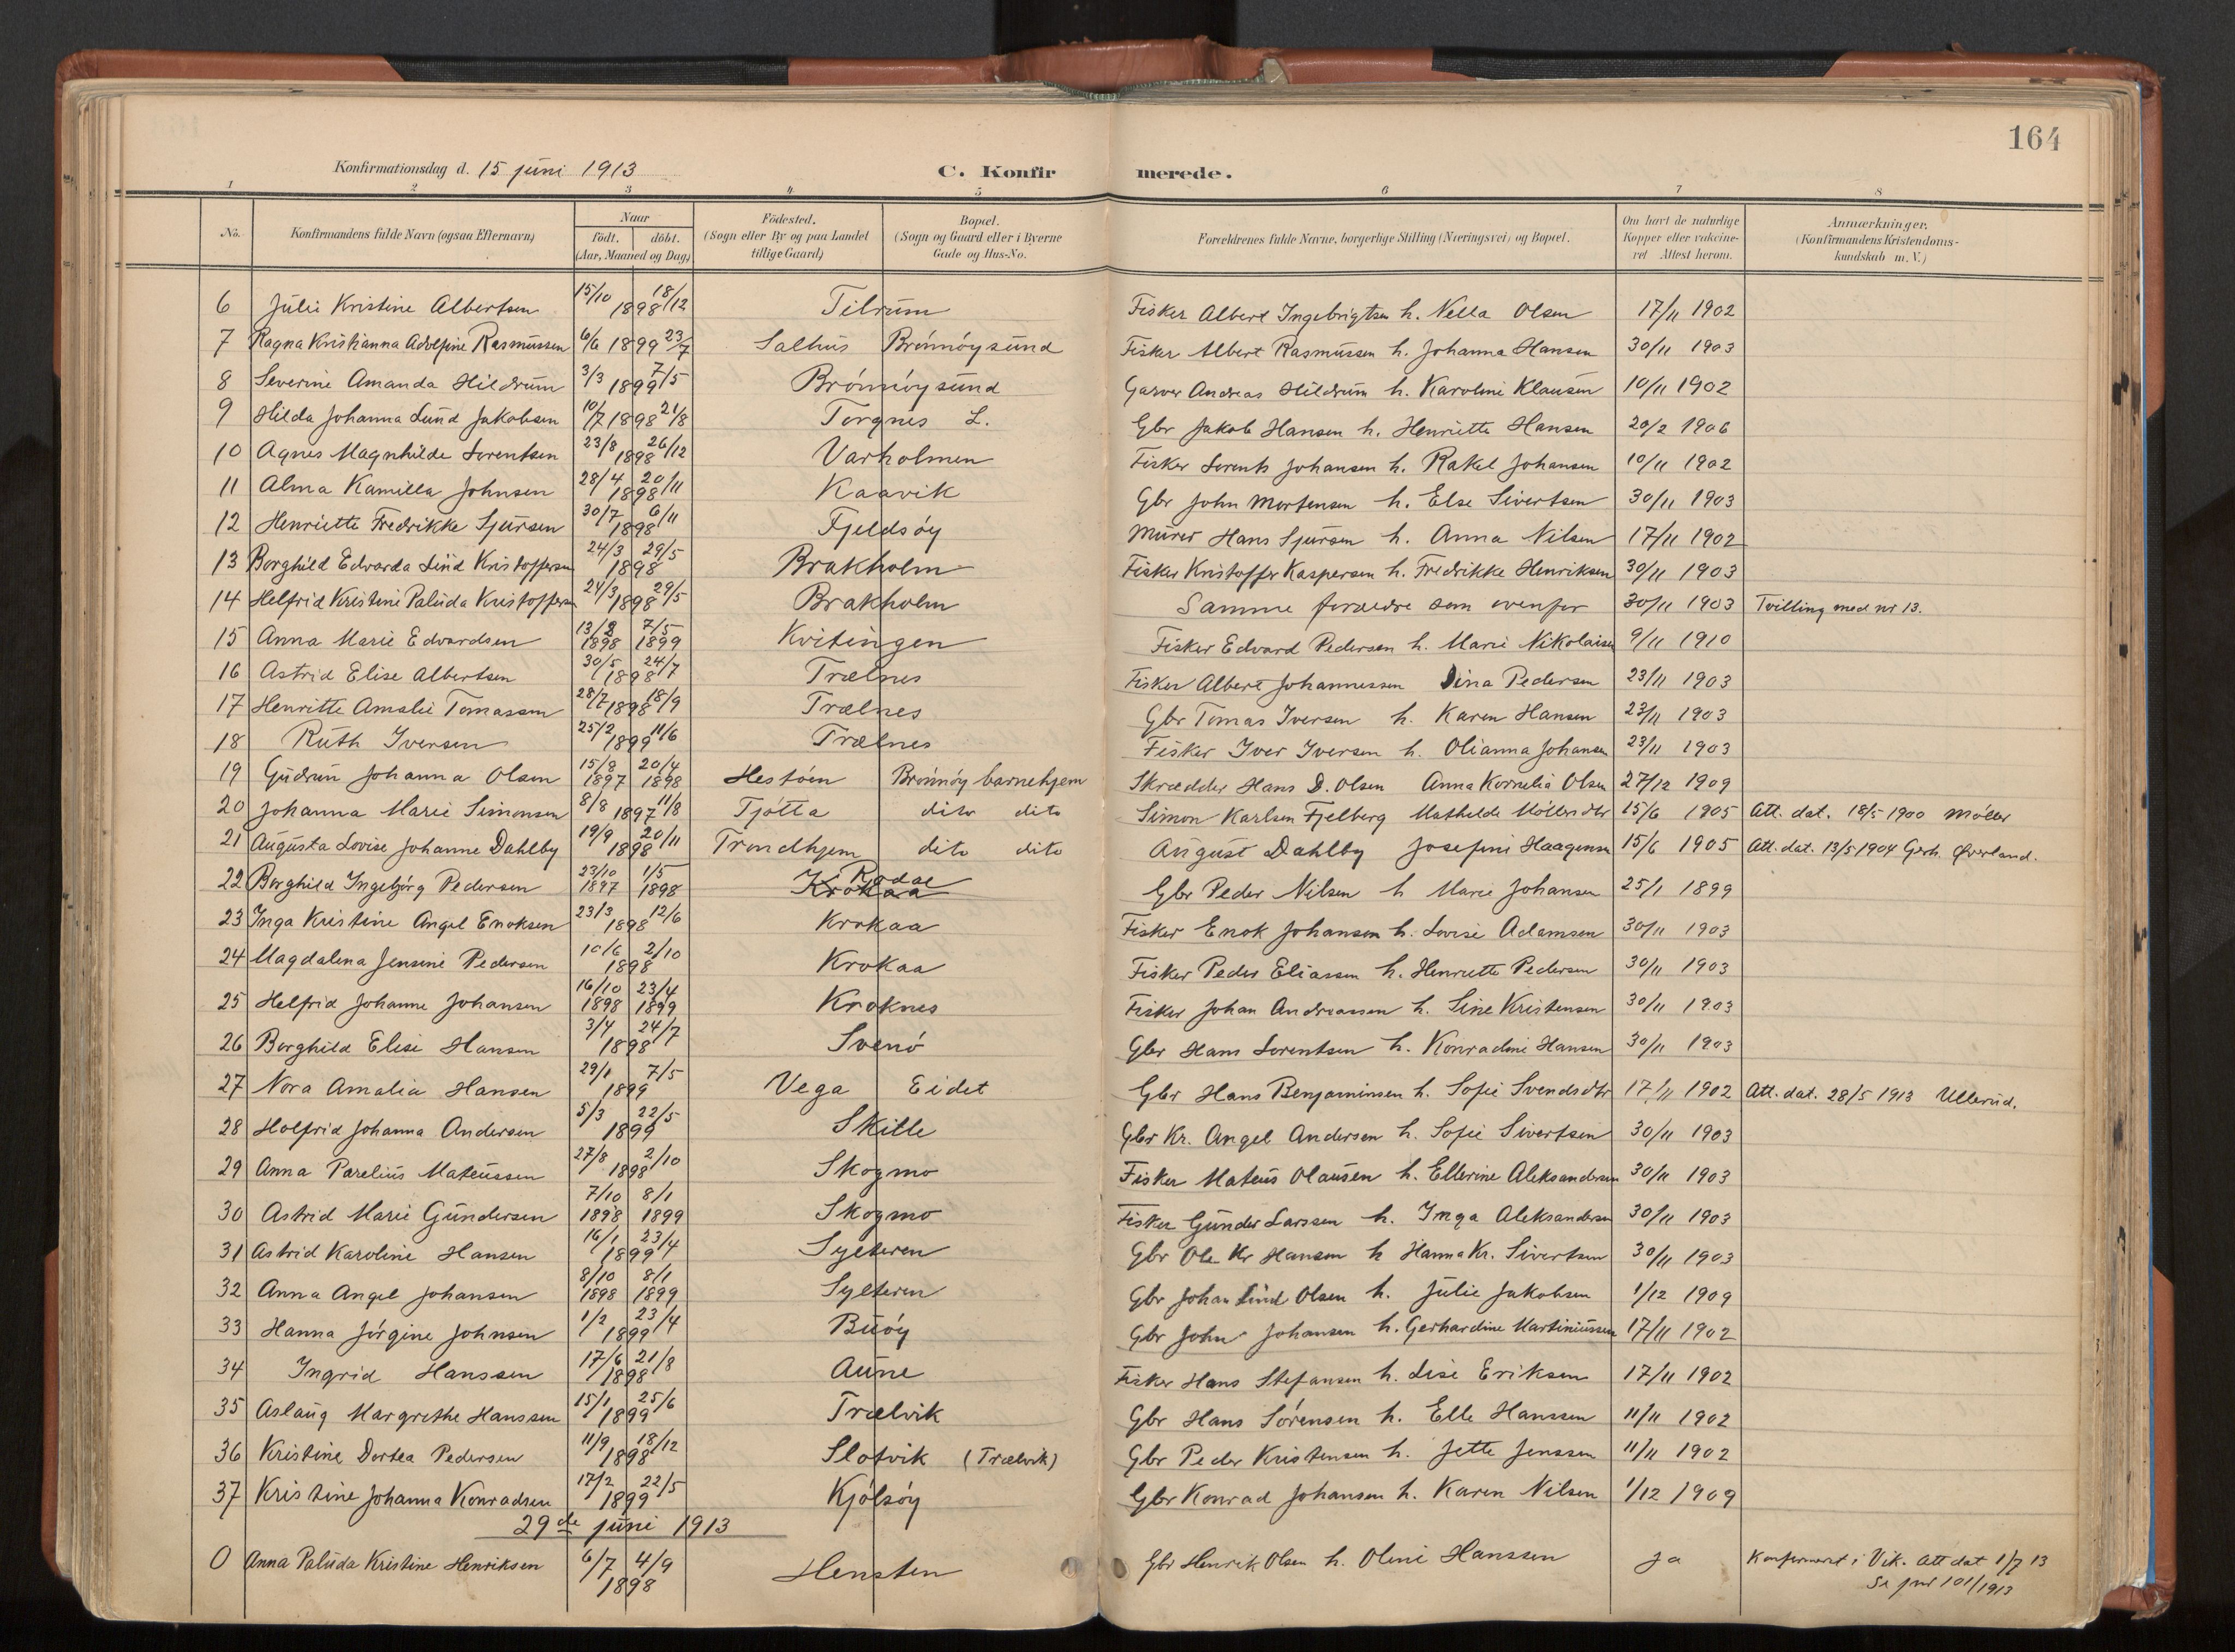 164
Konfirmationsdag d. 15 juni 1913 C. Konfirmerede.
1 2 3 4 5 6 7 8
No. Konfirmandens fulde Navn (ogsaa Efternavn) Naar födt. döbt. (Aar, Maaned og Dag) Födested. (Sogn eller By og paa Landet tillige Gaard) Bopæl. (Sogn og Gaard eller i Byerne Gade og Hus-No. Forældrenes fulde Navne, borgerlige Stilling (Næringsvei) og Bopæl. Om havt de naturlige Kopper eller vaksineret Attest herom. Anmærkninger. (Konfirmandens Kristendomskundskab m. V.)
6 Julie Kristine Albertsen 15/10 18/12 1898 Tilrum Fisker Albert Ingebrigtsen h. Nella Olsen 17/11 1902
7 Ragna Kristianna Adolfine Rasmussen 6/6 1899 23/7 Salhus Brønnøysund Fisker Albert Rasmussen h. Johanna Hansen 30/11 1903
8 Severine Amanda Hildrum 3/3 1899 7/5 Brønnøysund Garver Andreas Hildrum h. Karoline Klausen 10/11 1902
9 Hilda Johanna Lund Jakobsen 10/7 1898 21/8 Torgnes L. Gbr Jakob Hansen h. Henriette Hansen 20/2 1906
10 Agnes Magnhilde Lorentsen 23/8 26/12 1898 Varholmen Fisker Lorents Johansen h. Rakel Johansen 10/11 1902
11 Alma Kamilla Johnsen 28/4 20/11 1898 Kaavik Gbr John Mortensen h. Else Sivertsen 30/11 1903
12 Henriette Fredrikke Sjursen 30/7 6/11 1898 Fjeldsøy Murer Hans Sjursen h. Anna Nilsen 17/11 1902
13 Borghild Edvarda Lind Kristoffersen 24/3 29/5 1898 Brakholm Fisker Kristoffer Kaspersen h. Fredrikke Henriksen 30/11 1903
14 Helfrid Kristine Paluda Kristoffersen 24/3 29/5 1898 Brakholm Samme forældre som ovenfor 30/11 1903 Tvilling med nr 13.
15 Anna Marie Edvardsen 13/2 1898 7/5 1899 Kvitingen Fisker Edvard Pedersen h. Marie Nikolaisen 9/11 1910
16 Astrid Elise Albertsen 30/5 24/7 1898 Trælnes Fisker Albert Johannessen Dina Pedersen 23/11 1903
17 Henritte Amalie Tomassen 28/7 1898 18/9 Trælnes Gbr Tomas Iversen h. Karen Hansen 23/11 1903
18 Ruth Iversen 25/2 1899 11/6 Trælnes Fisker Iver Iversen h. Olianna Johansen 23/11 1903
19 Gudrun Johanna Olsen 15/8 1897 20/4 1898 Hestøen Brønnøy barnehjem Skrædder Hans D. Olsen Anna Kornelia Olsen 27/12 1909
20 Johanna Marie Simonsen 8/8 1897 11/8 Tjøtta dito dito Simon Karlsen Fjelberg Mathilde Møllersdtr 15/6 1905 Att. dat. 18/5 1900 Møller
21 Augusta Lovise Johanne Dahlby 19/9 20/11 1898 Trondhjem dito dito August Dahlby Josefine Haagensen 15/6 1905 Att. dat. 13/5 1904 Gerh. Øverland.
22 Borghild Ingebjørg Pedersen 23/10 1897 1/5 1898 Krokaa Gbr Peder Nilsen h Marie Johansen 25/1 1899
23 Inga Kristine Angel Enoksen 23/3 12/6 1898 Krokaa Fisker Enok Johansen h. Lovise Adamsen 30/11 1903
24 Magdalena Jensine Pedersen 10/6 2/10 1898 Krokaa Fisker Peder Eliassen h. Henriette Pedersen 30/11 1903
25 Helfrid Johanne Johansen 16/10 1898 23/4 1899 Kroknes Fisker Johan Andreassen h. Sine Kristensen 30/11 1903
26 Borghild Elise Hansen 3/4 24/7 1898 Svenø Gbr Hans Lorentsen h. Konradine Hansen 30/11 1903
27 Nora Amalia Hansen 29/1 7/5 1899 Vega Eidet Gbr Hans Benjaminsen h. Sofie Svendsdtr 17/11 1902 Att. dat. 28/5 1913 Ullerud.
28 Holfrid Johanna Andersen 5/3 22/5 1899 Skille Gbr Kr. Angel Andersen h. Sofie Sivertsen 30/11 1903
29 Anna Parelius Mateussen 27/8 2/10 1898 Skogmo Fisker Mateus Olausen h. Ellerine Aleksandersen 30/11 1903
30 Astrid Marie Gundersen 7/10 1898 8/1 1899 Skogmo Fisker Gunder Larssen h. Inga Aleksandersen 30/11 1903
31 Astrid Karoline Hansen 16/1 23/4 1899 Sylteren Gbr Ole Kr Hansen h Hanna Kr. Sivertsen 30/11 1903
32 Anna Angel Johansen 8/10 1898 8/1 1899 Sylteren Gbr Johan Lind Olsen h. Julie Jakobsen 1/12 1909
33 Hanna Jørgine Johnsen 1/2 23/4 1899 Buøy Gbr John Johansen h. Gerhardine Martiniussen 17/11 1902
34 Ingrid Hanssen 17/6 21/8 1898 Aune Fisker Hans Stefansen h. Lise Eriksen 17/11 1902
35 Aslaug Margrethe Hanssen 15/1 25/6 1899 Trælvik Gbr Hans Sørensen h. Elle Hanssen 11/11 1902
36 Kristine Dortea Pedersen 11/9 18/12 1898 Slotvik (Trælvik) Gbr Peder Kristensen h. Jette Jenssen 11/11 1902
37 Kristine Johanna Konradsen 17/2 22/5 1899 Kjølsøy Gbr Konrad Johansen h. Karen Nilsen 1/12 1909
29de juni 1913
0 Anna Paluda Kristine Henriksen 6/7 4/9 1898 Hensten Gbr Henrik Olsen h. Oline Hanssen ja Konfirmeret i Vik. Att dat 1/7 13
Se jnr 101/1913